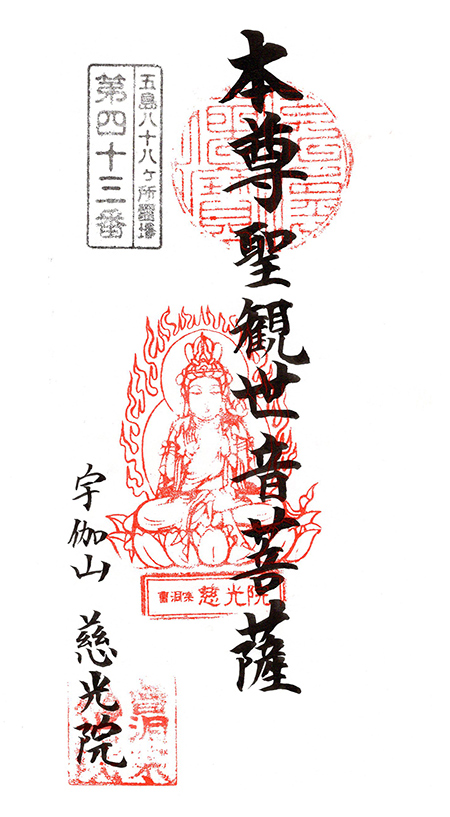 本尊聖観世音菩薩
五島八十八ヶ所霊場
第四十三番
慈光院
宇伽山 慈光院